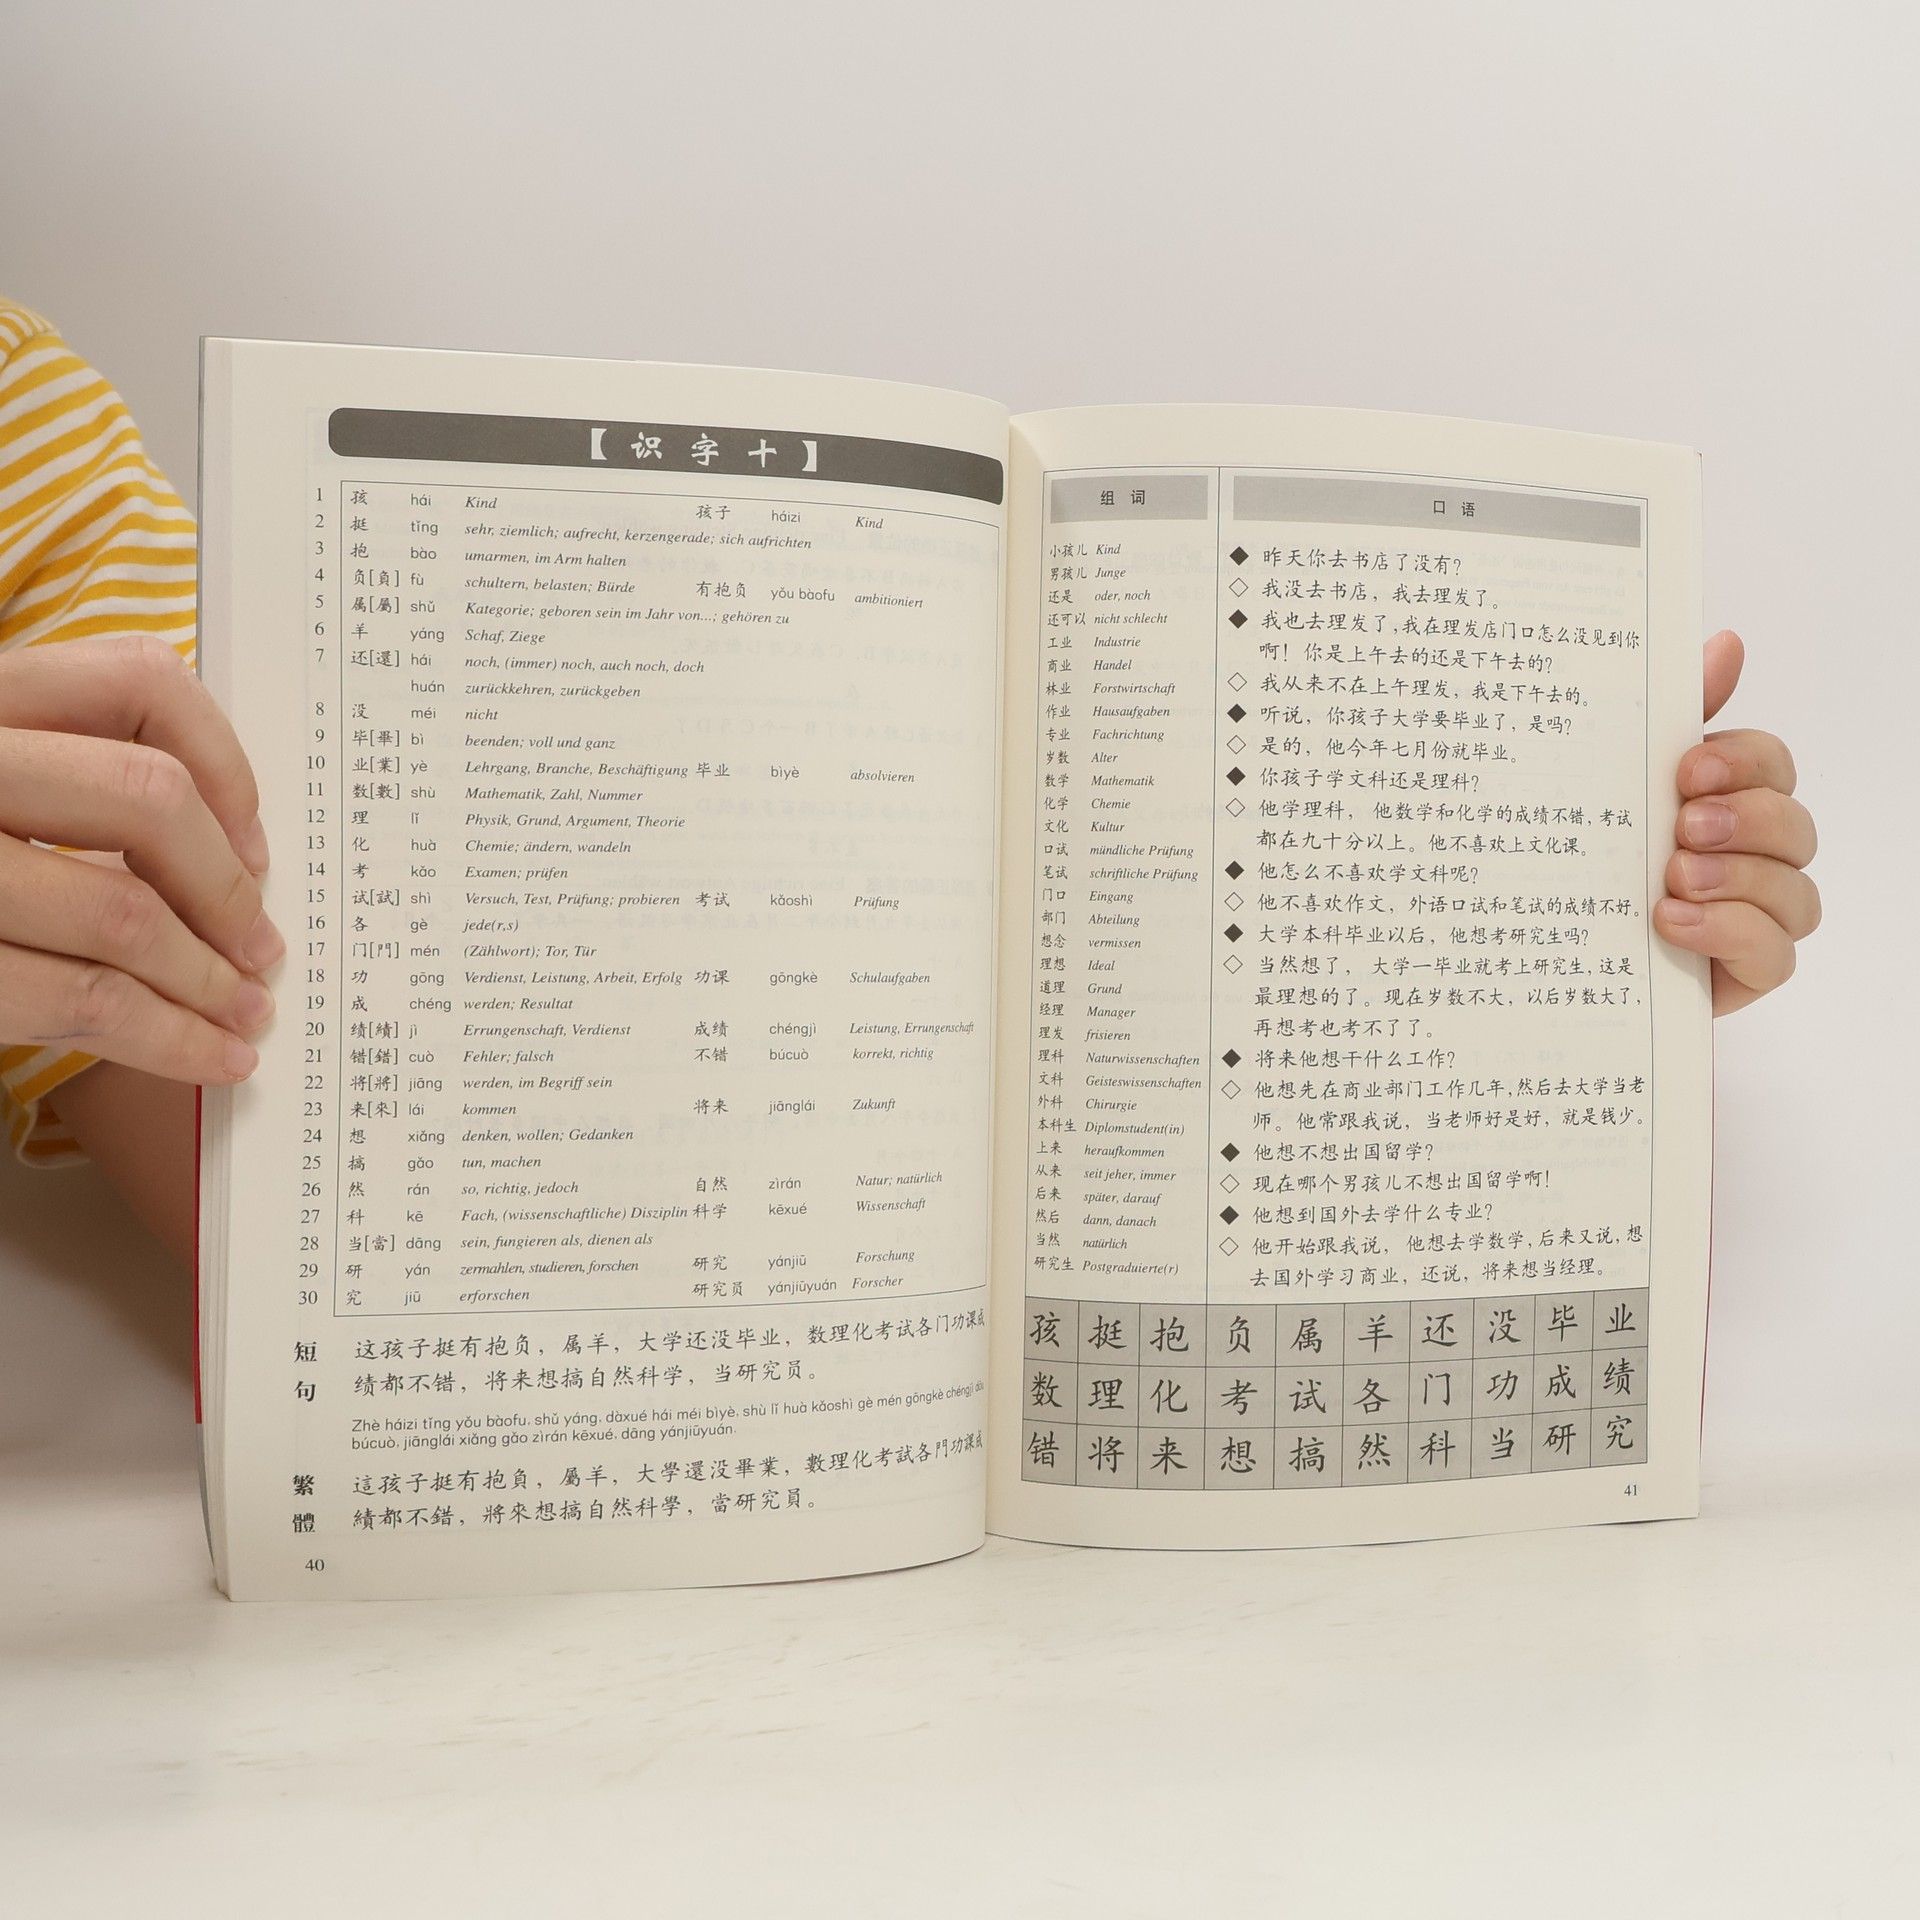 【识字十】
1 孩 hái Kind 孩子 háizi Kind
2 挺 tǐng sehr, ziemlich; aufrecht, kerzengerade; sich aufrichten
3 抱 bào umarmen, im Arm halten
4 负[負] fù schultern, belasten; Bürde 有抱负 yǒu bàofu ambitioniert
5 属[屬] shǔ Kategorie; geboren sein im Jahr von...; gehören zu
6 羊 yáng Schaf, Ziege
7 还[還] hái noch, (immer) noch, auch noch, doch
huán zurückkehren, zurückgeben
8 没 méi nicht
9 毕[畢] bì beenden; voll und ganz
10 业[業] yè Lehrgang, Branche, Beschäftigung 毕业 bìyè absolvieren
11 数[數] shù Mathematik, Zahl, Nummer
12 理 lǐ Physik, Grund, Argument, Theorie
13 化 huà Chemie; ändern, wandeln
14 考 kǎo Examen; prüfen
15 试[試] shì Versuch, Test, Prüfung; probieren 考试 kǎoshì Prüfung
16 各 gè jede(r,s)
17 门[門] mén (Zählwort); Tor, Tür
18 功 gōng Verdienst, Leistung, Arbeit, Erfolg 功课 gōngkè Schulaufgaben
19 成 chéng werden; Resultat
20 绩[績] jì Errungenschaft, Verdienst 成绩 chéngjì Leistung, Errungenschaft
21 错[錯] cuò Fehler; falsch 不错 búcuò korrekt, richtig
22 将[將] jiāng werden, im Begriff sein
23 来[來] lái kommen 将来 jiānglái Zukunft
24 想 xiǎng denken, wollen; Gedanken
25 搞 gǎo tun, machen
26 然 rán so, richtig, jedoch 自然 zìrán Natur; natürlich
27 科 kē Fach, (wissenschaftliche) Disziplin 科学 kēxué Wissenschaft
28 当[當] dāng sein, fungieren als, dienen als
29 研 yán zermahlen, studieren, forschen 研究 yánjiū Forschung
30 究 jiū erforschen 研究员 yánjiūyuán Forscher
短句
这孩子挺有抱负，属羊，大学还没毕业，数理化考试各门功课成
绩都不错，将来想搞自然科学，当研究员。
Zhè háizi tǐng yǒu bàofu, shǔ yáng, dàxué hái méi bìyè, shù lǐ huà kǎoshì gè mén gōngkè chéngjì dōu
búcuò, jiānglái xiǎng gǎo zìrán kēxué, dāng yánjiūyuán.
繁體
這孩子挺有抱負，屬羊，大學還没畢業，數理化考試各門功課成
績都不錯，將來想搞自然科學，當研究員。
40
组词
小孩儿 Kind
男孩儿 Junge
还是 oder, noch
还可以 nicht schlecht
工业 Industrie
商业 Handel
林业 Forstwirtschaft
作业 Hausaufgaben
专业 Fachrichtung
岁数 Alter
数学 Mathematik
化学 Chemie
文化 Kultur
口试 mündliche Prüfung
笔试 schriftliche Prüfung
门口 Eingang
部门 Abteilung
想念 vermissen
理想 Ideal
道理 Grund
经理 Manager
理发 frisieren
理科 Naturwissenschaften
文科 Geisteswissenschaften
外科 Chirurgie
本科生 Diplomstudent(in)
上来 heraufkommen
从来 seit jeher, immer
后来 später, darauf
然后 dann, danach
当然 natürlich
研究生 Postgraduierte(r)
口语
◆ 昨天你去书店了没有？
◇ 我没去书店，我去理发了。
◆ 我也去理发了，我在理发店门口怎么没见到你
啊！你是上午去的还是下午去的？
◇ 我从来不在上午理发，我是下午去的。
◆ 听说，你孩子大学要毕业了，是吗？
◇ 是的，他今年七月份就毕业。
◆ 你孩子学文科还是理科？
◇ 他学理科，他数学和化学的成绩不错，考试
都在九十分以上。他不喜欢上文化课。
◆ 他怎么不喜欢学文科呢？
◇ 他不喜欢作文，外语口试和笔试的成绩不好。
◆ 大学本科毕业以后，他想考研究生吗？
◇ 当然想了，大学一毕业就考上研究生，这是
最理想的了。现在岁数不大，以后岁数大了，
再想考也考不了了。
◆ 将来他想干什么工作？
◇ 他想先在商业部门工作几年，然后去大学当老
师。他常跟我说，当老师好是好，就是钱少。
◆ 他想不想出国留学？
◇ 现在哪个男孩儿不想出国留学啊！
◆ 他想到国外去学什么专业？
◇ 他开始跟我说，他想去学数学，后来又说，想
去国外学习商业，还说，将来想当经理。
孩 挺 抱 负 属 羊 还 没 毕 业
数 理 化 考 试 各 门 功 成 绩
错 将 来 想 搞 然 科 当 研 究
41